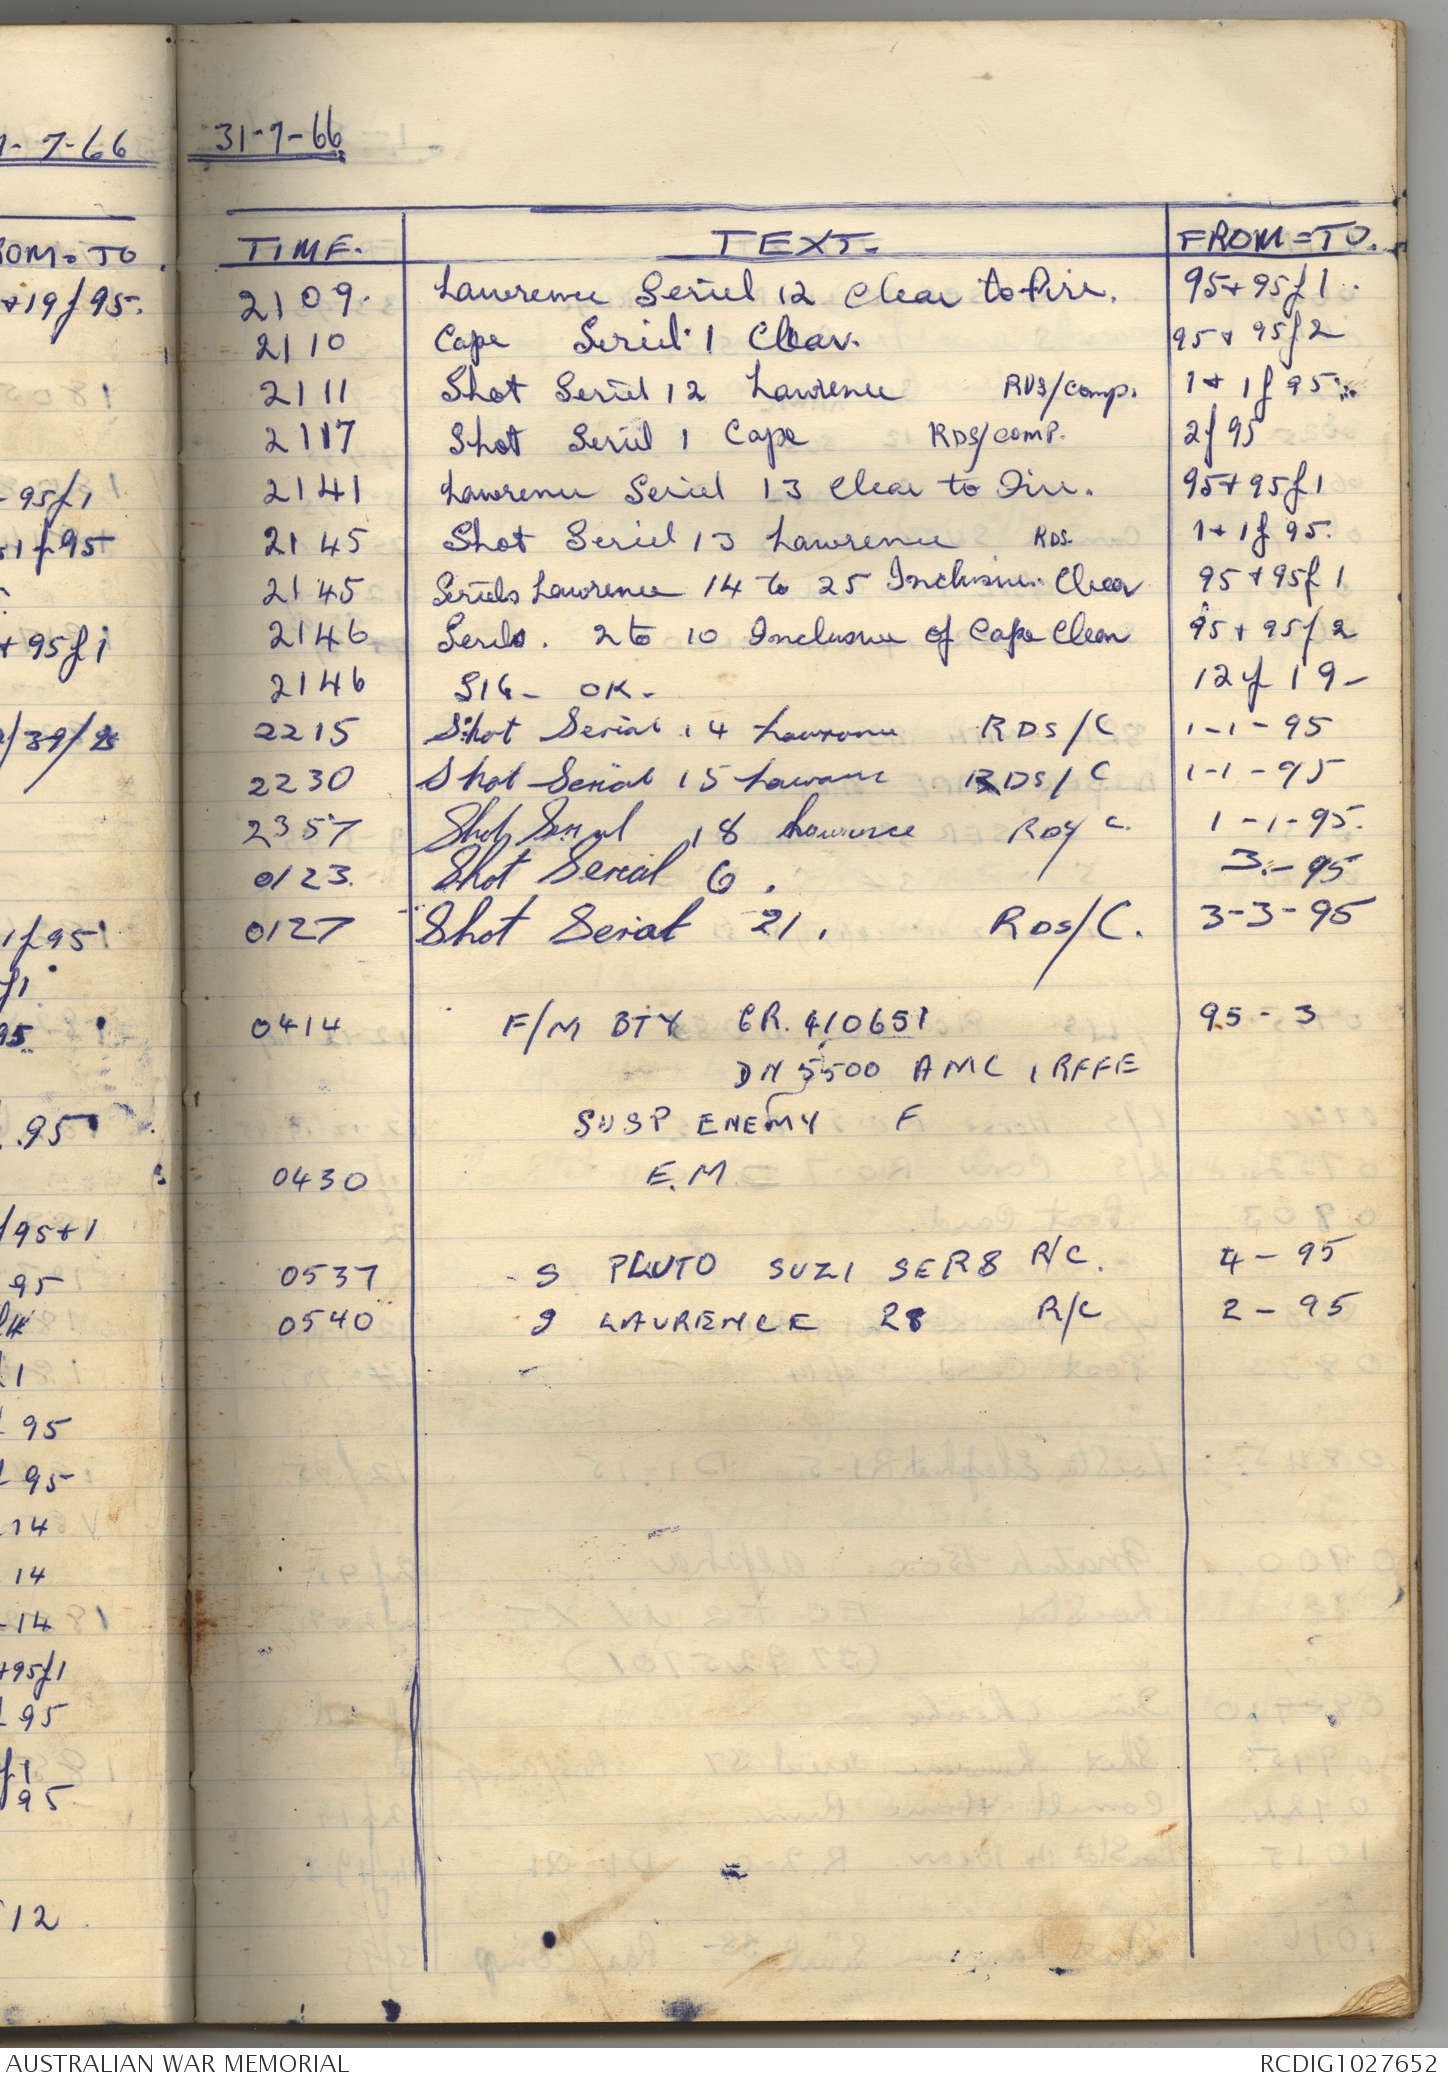 31-7-66
TIME. TEXT. FROM = TO.
2109. Lawrence Seriel 12 Clear to Fire. 95 + 95f1.
2110 Cape Seriel 1 Clear. 95 + 95f2
2111 Shot Seriel 12 Lawrence RDS/comp. 1 + 1f 95
2117 Shot Seriel 1 Cape RDS/COMP. 2f 95
2141 Lawrence Seriel 13 Clear to Fire. 95 + 95f1
2145 Shot Seriel 13 Lawrence RDS. 1 + 1f 95.
2145 Seriels Lawrence 14 to 25 Inclusive Clear 95 + 95f 1
2146 2 to 10 Inclusive of Cape Clear 95 + 95f 2
2146 SIG - OK - 12 f 19 -
2215 Shot Serial 14 Lawrence RDS/C 1-1-95
2230 Shot Serial 15 Lawrence RDS/C 1-1-95
2357 Shot Serial 18 Lawrence RDS/C. 1-1-95.
0123. Shot Serial 6. 3.-95
0127 Shot Serial 21. RDS/C. 3-3-95
0414 F/M BTY GR. 410651 95 - 3
DN 5500 AMC 1 RFFE
SUSP ENEMY F
0430 E.M
0537 S PLUTO SUZI SER 8 R/C. 4 - 95
0540 S LAURENCE 28 R/C 2 - 95
7-66
OM = TO
+19f95.
- 95f1
+1f95
+ 95f1
1f95
f1
95
.95
/95+1
95
1
95
95
14
14
-14
+95f1
95
f1
95
12
AUSTRALIAN WAR MEMORIAL RCDIG1027652